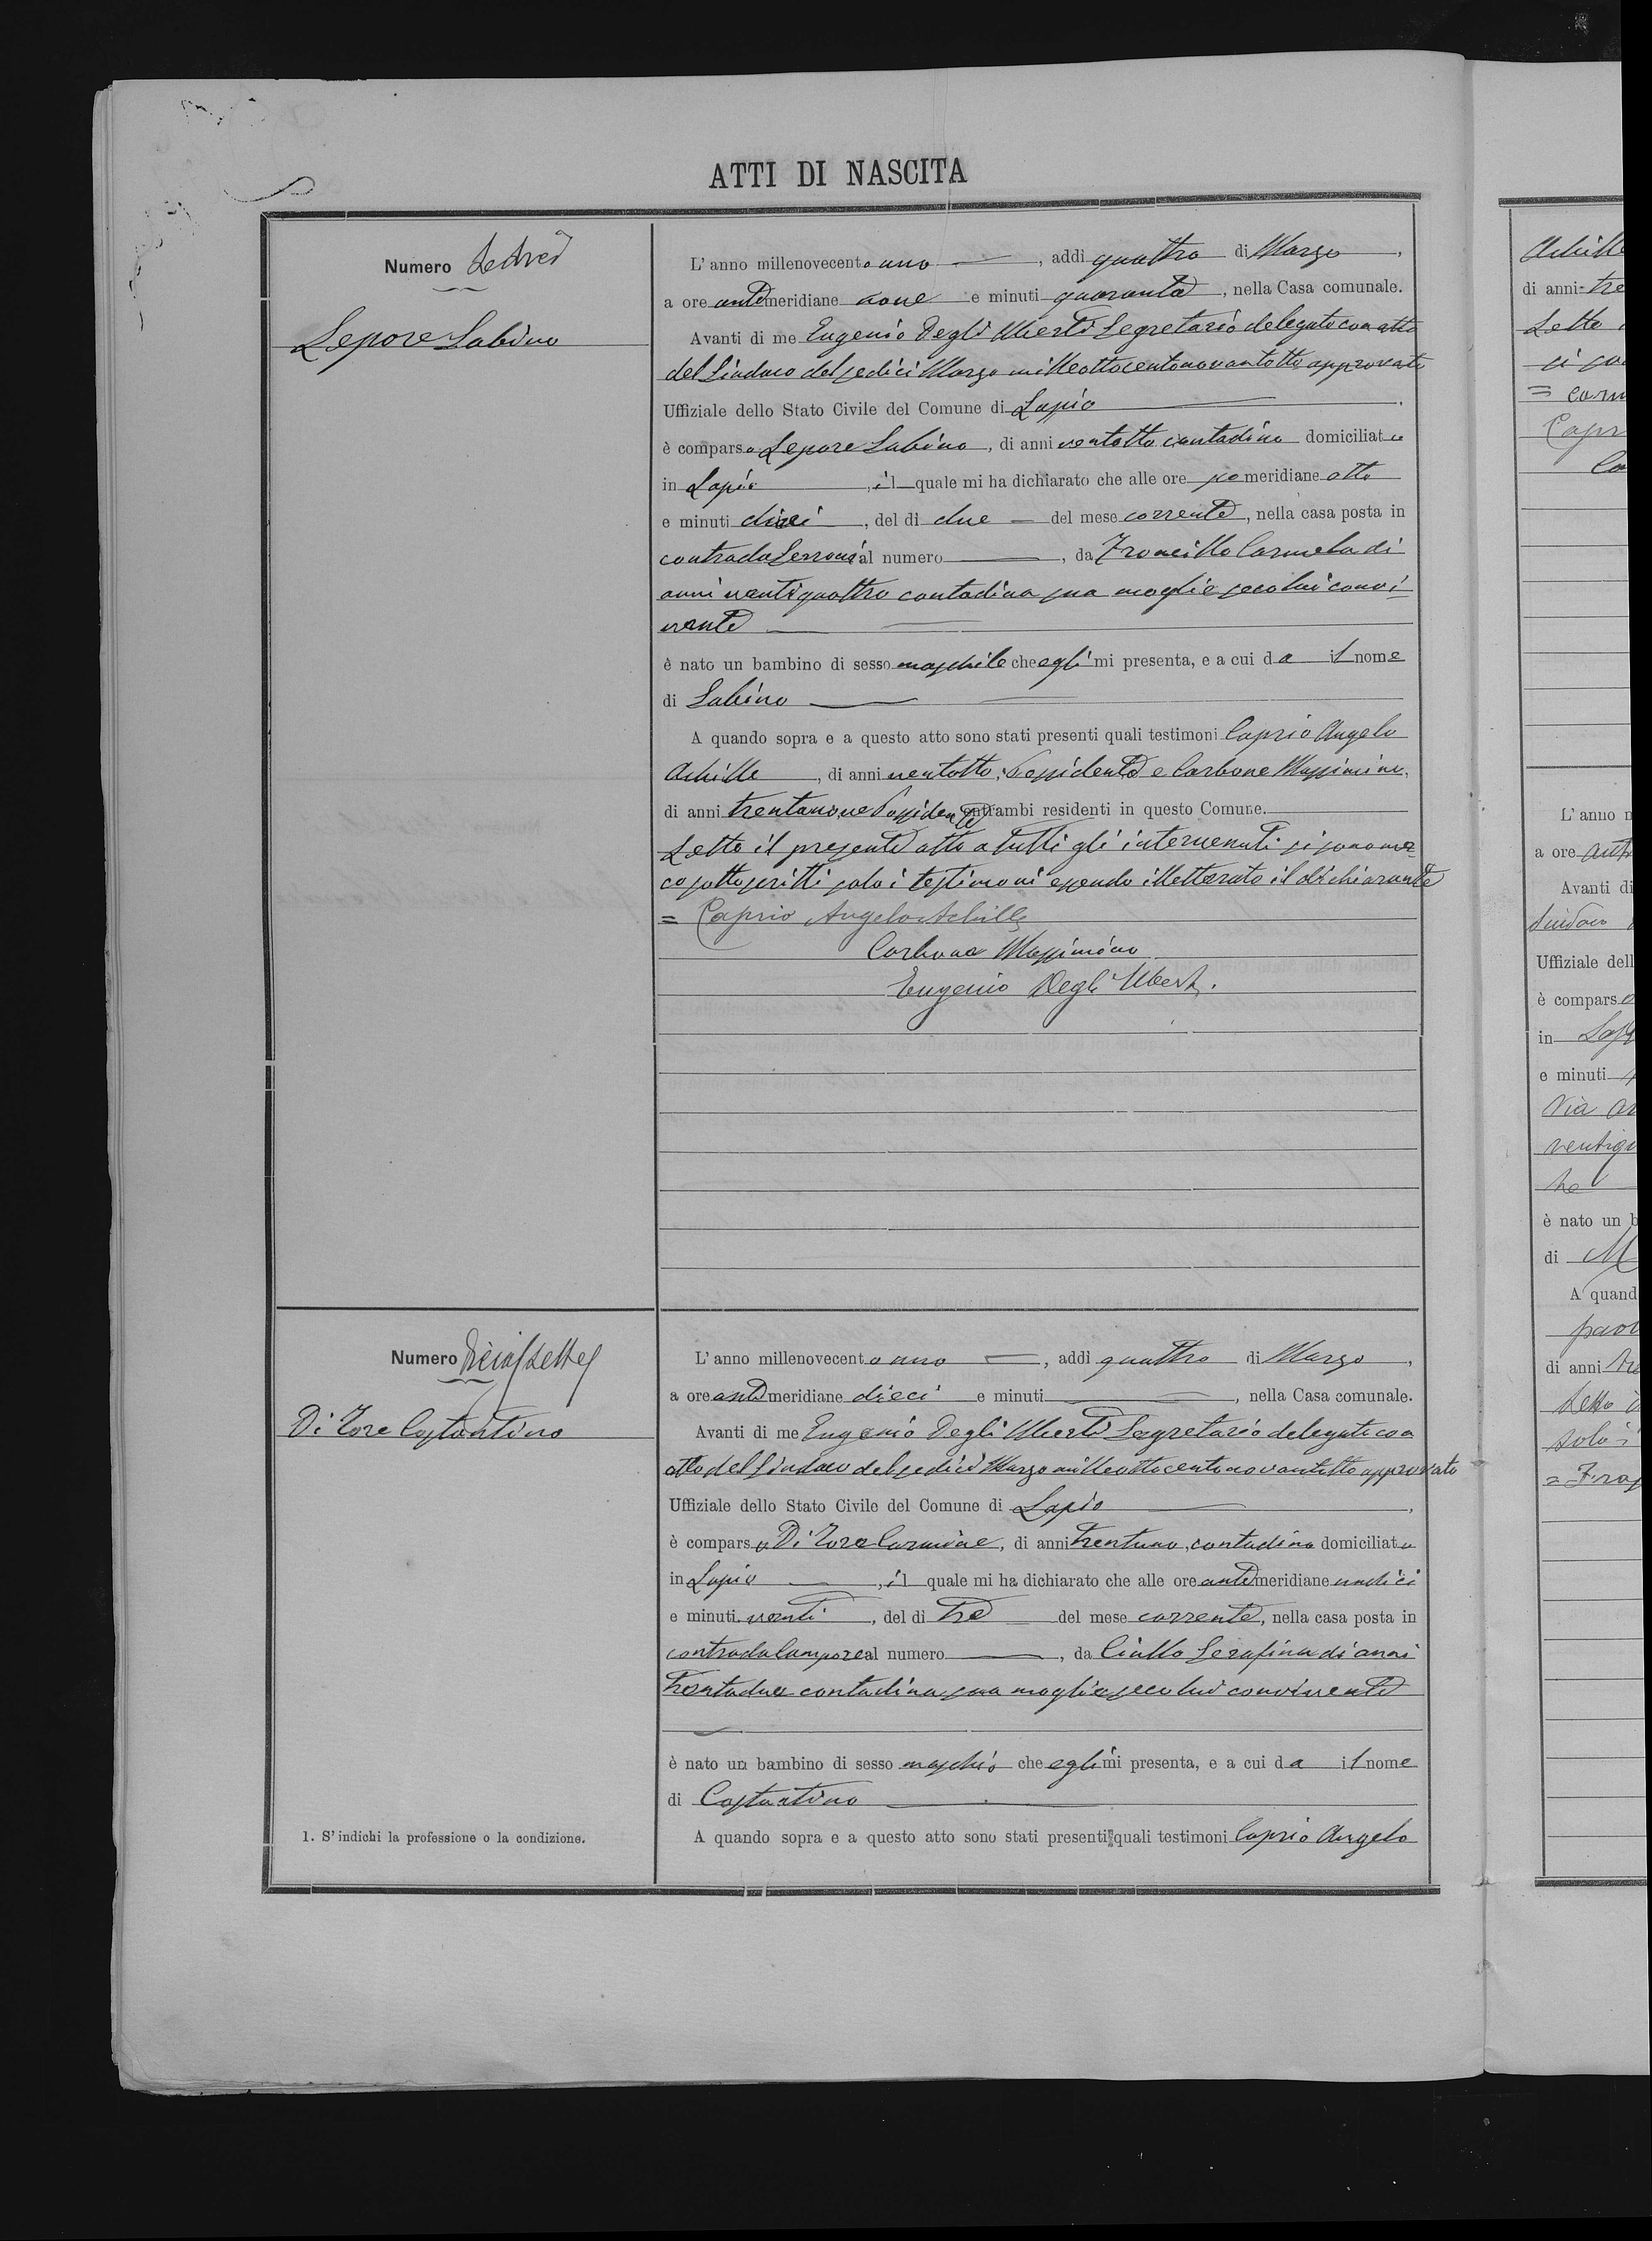 ATTI DI NASCITA
Numero Sedici
Lepore Sabino
L'anno millenovecento uno, addì quattro di Marzo,
a ore antimeridiane nove e minuti quaranta, nella Casa comunale.
Avanti di me Eugenio Degli Uberti Segretario delegato con atto
del Sindaco del sedici Marzo milleottocentonovantotto approvato
Uffiziale dello Stato Civile del Comune di Lapio.
è comparso Lepore Sabino, di anni ventotto, contadino domiciliato
in Lapio, il quale mi ha dichiarato che alle ore pomeridiane otto
e minuti dieci, del dì due del mese corrente, nella casa posta in
contrada Serroni al numero, da Troncillo Carmela di
anni ventiquattro contadina sua moglie seco lui convi
vente
è nato un bambino di sesso maschile che egli mi presenta, e a cui da il nome
di Sabino
A quando sopra e a questo atto sono stati presenti quali testimoni Caprio Angelo
Achille, di anni ventotto, Possidente e Carbone Massimino,
di anni trentanove Possidente entrambi residenti in questo Comune.
Letto il presente atto a tutti gli intervenuti si sono me=
co sottoscritti solo i testimoni essendo illetterato il dichiarante
= Caprio Angelo Achille
Carbone Massimino
Eugenio Degli Uberti.
Numero Diciassette
Di Tore Costantino
L'anno millenovecento uno, addì quattro di Marzo,
a ore antimeridiane dieci e minuti, nella Casa comunale.
Avanti di me Eugenio Degli Uberti Segretario delegato con
atto del Sindaco del sedici Marzo milleottocentonovantotto approvato
Uffiziale dello Stato Civile del Comune di Lapio,
è comparso Di Tore Carmine, di anni trentuno, contadino domiciliato
in Lapio, il quale mi ha dichiarato che alle ore antimeridiane undici
e minuti venti, del dì tre del mese corrente, nella casa posta in
contrada Campore al numero, da Ciallo Serafina di anni
trentadue contadina sua moglie seco lui convivente
è nato un bambino di sesso maschio che egli mi presenta, e a cui da il nome
di Costantino
A quando sopra e a questo atto sono stati presenti quali testimoni Caprio Angelo
1. S'indichi la professione o la condizione.
Achille
di anni tre
Letto
= Carm
Capr
L'anno
a ore
Avanti di
Uffiziale dell
è comparso
in
e minuti
Via
ventiqu
è nato un b
di M
A quand
di anni
Letto
solo i